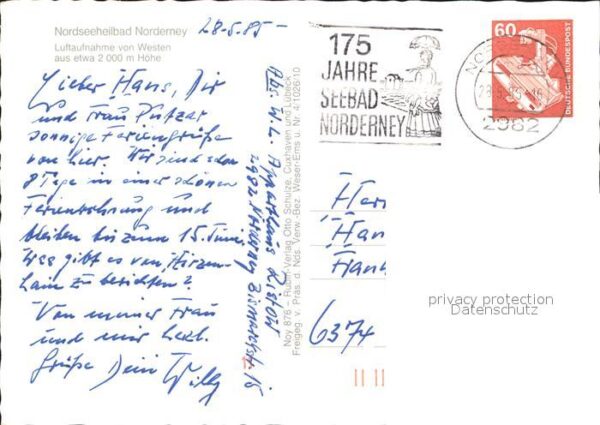 Nordseeheilbad Norderney
Luftaufnahme von Westen
aus etwa 2 000 m Höhe
28-5.85-
Lieber Hans, Dir
und Frau
sonnige Feriengrüße
von hier. Wir sind schon
8 Tage in einer schönen
Ferienwohnung und
bleiben bis zum 15. Juni.
Was gibt es von Hirzen-
hain zu berichten?
Von meiner Frau
und mir herzl.
Grüße Dein Willy
Abs. W. L. Apparthaus
2982 Norderney Bismarckstr. 15
Noy 876 - Rubin-Verlag Otto Schulze, Cuxhaven und Lübeck
Freigeg. v. Präs. d. Nds. Verw.-Bez. Weser-Ems u. Nr. 4/1026/10
175
JAHRE
SEEBAD
NORDERNEY
2982
60
DEUTSCHE BUNDESPOST
Herr
Han
Fran
6374
privacy protection
Datenschutz